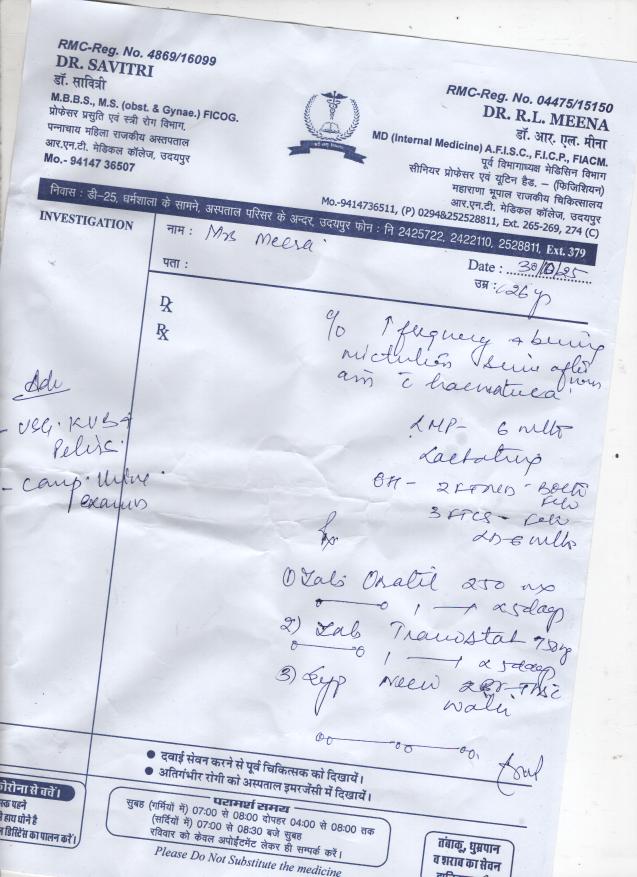 RMC-Reg. No. 4869/16099
DR. SAVITRI
डॉ. सावित्री
M.B.B.S., M.S. (obst. & Gynae.) FICOG.
प्रोफेसर प्रसुति एवं स्त्री रोग विभाग,
पन्नाधाय महिला राजकीय अस्तपताल
आर.एन.टी. मेडिकल कॉलेज, उदयपुर
Mo.- 94147 36507
RMC-Reg. No. 04475/15150
DR. R.L. MEENA
डॉ. आर. एल. मीना
MD (Internal Medicine) A.F.I.S.C., F.I.C.P., FIACM.
पूर्व विभागाध्यक्ष मेडिसिन विभाग
सीनियर प्रोफेसर एवं यूटिन हैड, – (फिजिशियन)
महाराणा भूपाल राजकीय चिकित्सालय
आर.एन.टी. मेडिकल कॉलेज, उदयपुर
Mo.-9414736511, (P) 0294&252528811, Ext. 265-269, 274 (C)
निवास : डी-25, धर्मशाला के सामने, अस्पताल परिसर के अन्दर, उदयपुर फोन : नि 2425722, 2422110, 2528811, Ext. 379
INVESTIGATION
नाम : Mrs Meera
Date : 30/ /25
पता :
उम्र : 26 y
Dx
Rx
c/o ↑ frequency + burning
micturition since
haematuria
LMP- 6 mths
Lactating
OH- 2 FTND - Both
3 FTCS -
LD-6 mths
Adv
- USG. KUB +
Pelvis.
- Comp. Urine
exam
Rx
1) Tab 250
1 x 5 days
2) Tab Transtat
1 x 5 days
3) Syp Neeri 2
water
● दवाई सेवन करने से पूर्व चिकित्सक को दिखायें।
● अतिगंभीर रोगी को अस्पताल इमरजेंसी में दिखायें।
कोरोना से बचें।
पहने
हाथ धोने है
डिस्टेंस का पालन करें।
परामर्श समय
सुबह (गर्मियों में) 07:00 से 08:00 दोपहर 04:00 से 08:00 तक
(सर्दियों में) 07:00 से 08:30 बजे सुबह
रविवार को केवल अपोईंटमेंट लेकर ही सम्पर्क करें।
Please Do Not Substitute the medicine
तंबाकू, धुम्रपान
व शराब का सेवन